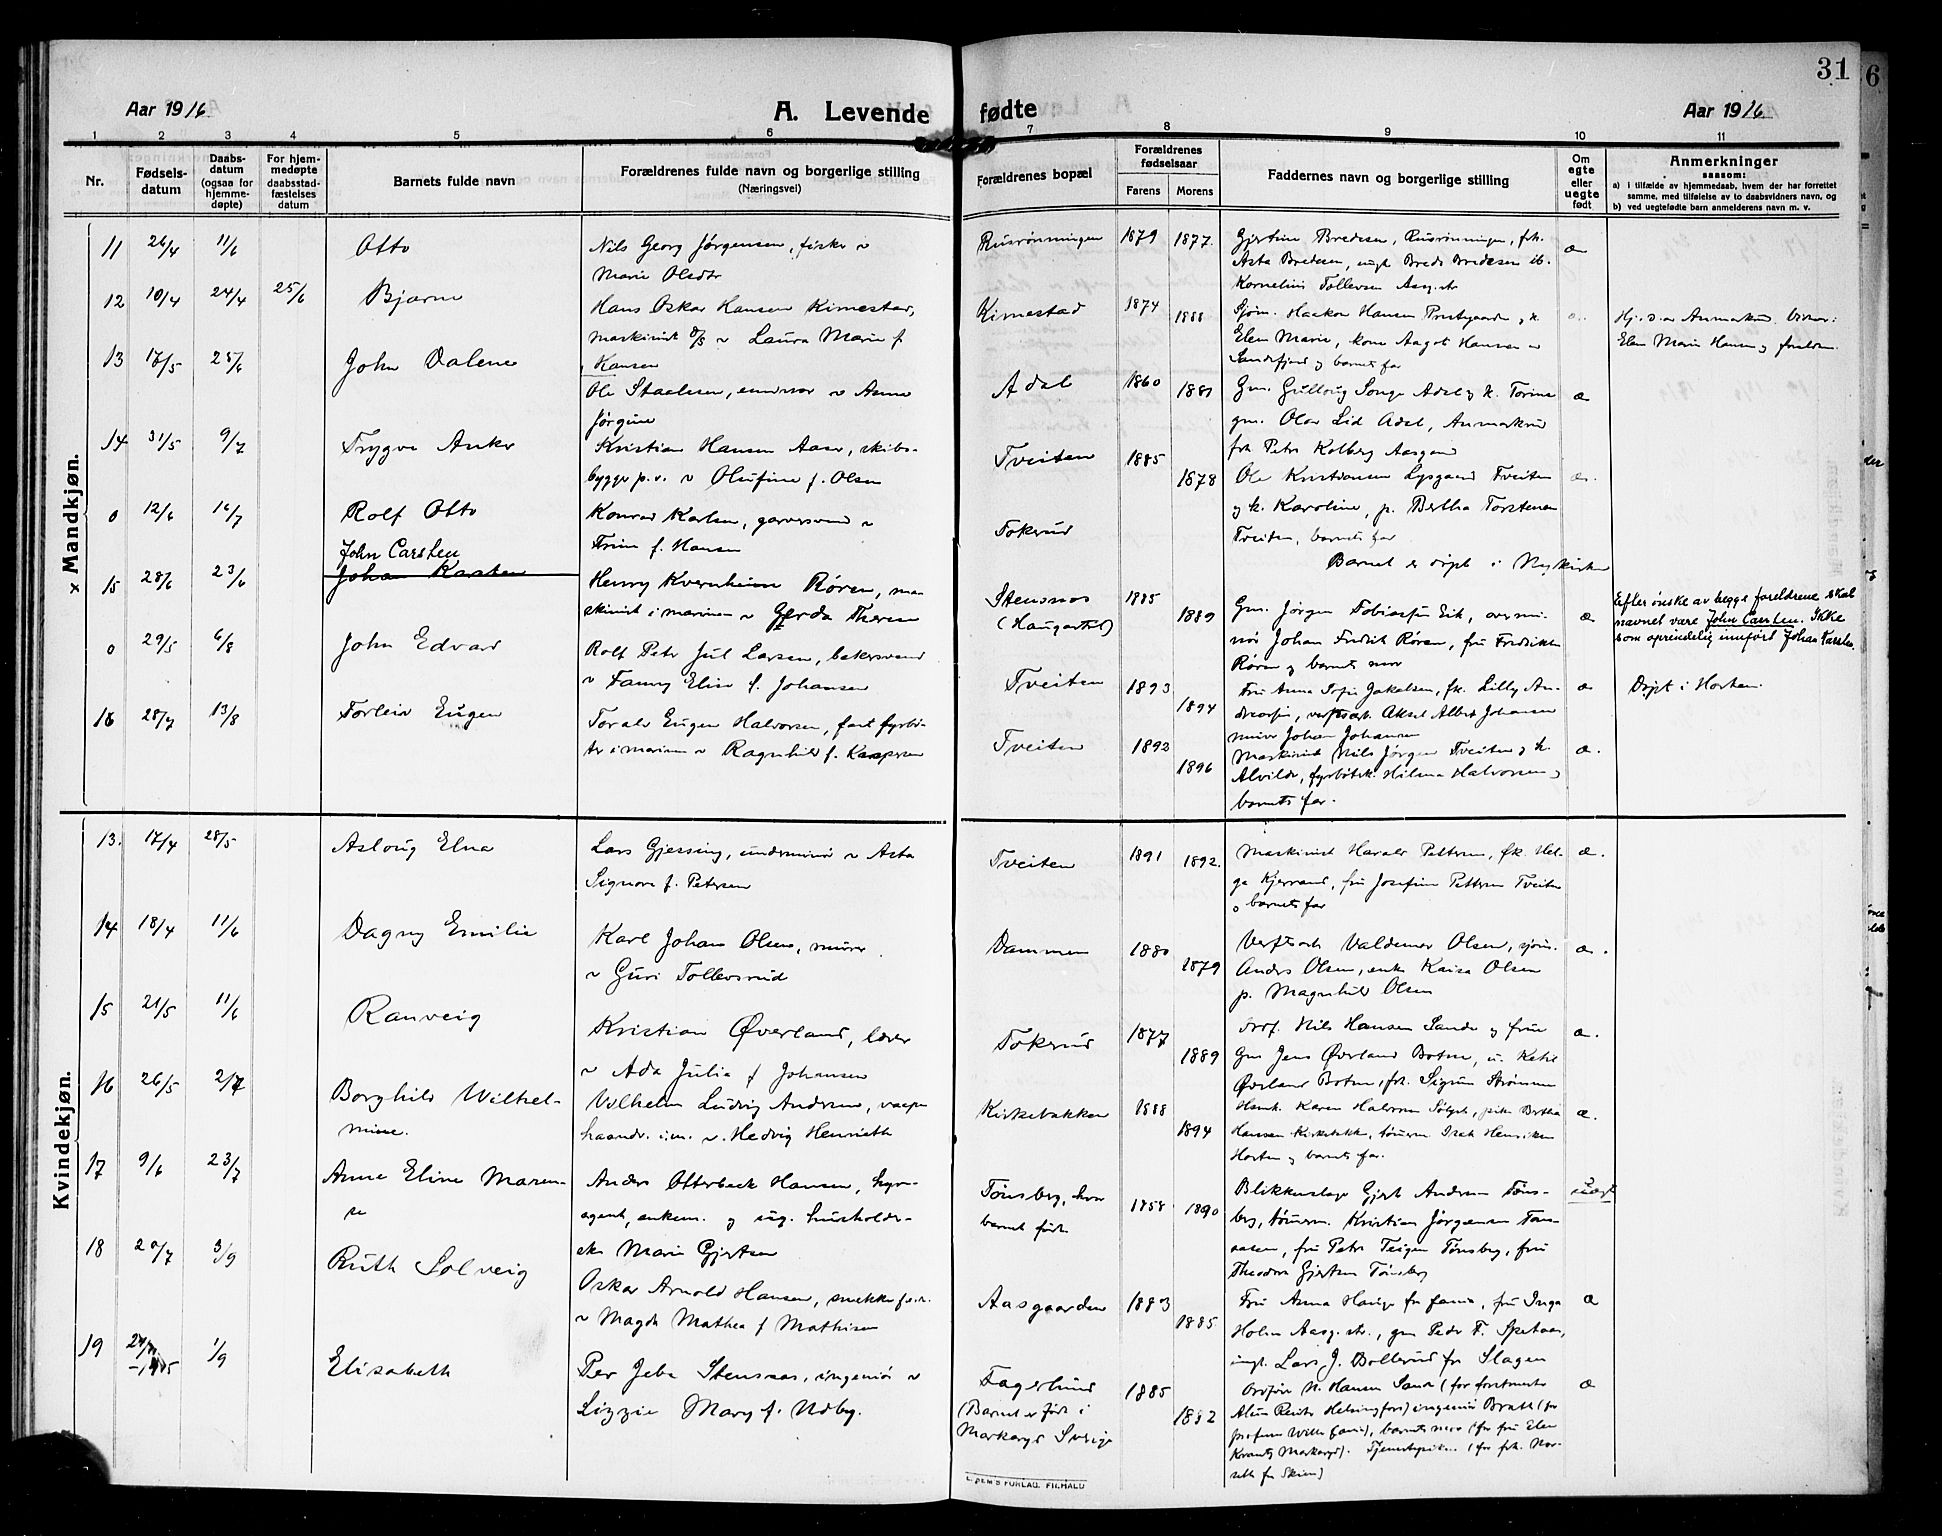 31
Aar 1916
A. Levende fødte
Aar 1916
1 2 3 4 5 6 7 8 9 10 11
Nr.
Fødsels-
datum
Daabs-
datum
(ogsaa for
hjemme-
døpte)
For hjem-
medøpte
daabsstad-
fæstelses
datum
Barnets fulde navn
Forældrenes fulde navn og borgerlige stilling
(Næringsvei)
Forældrenes bopæl
Forældrenes
fødselsaar
Farens Morens
Faddernes navn og borgerlige stilling
Om
egte
eller
uegte
født
Anmerkninger
saasom:
a) i tilfælde av hjemmedaab, hvem der har forrettet
samme, med tilføielse av to daabsvidners navn, og
b) ved uegtefødte barn anmelderens navn m. v.
Mandkjøn.
11 26/4 11/6 Otto
Nils Georg Jørgensen, fisker v
Marie Olsdtr
Rusrønningen 1879 1877.
Gjertine Bredesen, Rusrønningen, frk.
Asta Bredesen, ungk Brede Bredesen ib.
Kornelius Tollevsen Aasg.str
æ
12 10/4 24/4 25/6 Bjarne
Hans Oskar Hansen Kirnestad,
maskinist v Laura Marie f.
Hansen
Kirnestad 1874 1888
Sjøm. Haakon Hansen
Elen Marie, kone Aagot Hansen
Sandefjord og barnets far
Elen Marie Hansen og foreldrene
13 17/5 25/6 John Dalene
Ole Staalesen, emissær v Anne
Jørgine
Adal 1860 1881
Gm. Gulloug Songe Adal og k. Torine
gm. Olav Lid Adal,
frk Petra Kolberg Aasgard
æ
14 31/5 9/7 Trygve Anker
Kristian Hansen Aas, skibs-
bygger p.v. v Olufine f. Olsen
Tveiten 1885 1878
Ole Kristiansen Lysgaard Tveiten
og k. Karoline, p. Bertha Torstensen
Tveiten, barnets far
æ.
0 12/6 16/7 Rolf Otto
Konrad Karlsen, garversvend v
f. Hansen
Tokerud
Barnet er døpt i Nykirken
15 28/6 23/6 John Carsten
Johan Karsten
Henry Kvernheim Røren, ma-
skinist i marinen v Gerda Therese
Stensnes
(Haugartet)
1885 1889
Gm. Jørgen Tobiassen Eik,
Johan Fredrik Røren, fru Fredrikke
Røren og barnets mor
æ
Efter ønske av begge foreldrene skal
navnet være John Carsten. Ikke
som oprindelig innført Johan Karsten.
0 29/5 6/8 John Edvard
Rolf Peter Jul Larsen, bakersvend
v Fanny Elise f. Johansen
Tveiten 1893 1894
Fru Anna Sofie Jakobsen, fr. Lilly An-
dreassen, verftsarb. Aksel Albert Johansen
murer Johan Johansen
æ
Døpt i Horten.
16 28/7 13/8 Torleiv Eugen
Toralv Eugen Halvorsen, fast fyrbø-
ter i marinen v Ragnhild f. Kaspersen
Tveiten 1892 1896
Maskinist Nils Jørgen Tveiten og k.
Alvilde, fyrbøtersk. Hilma Halvorsen og
barnets far.
æ.
Kvindekjøn.
13. 17/4 28/5 Aslaug Elna
Lars Gjessing, underminør v Asta
Signora f. Petersen
Tveiten 1891 1892.
Maskinist Harald Pettersen, frk. Hel-
ga Kjerrand, fru Josefine Pettersen Tveiten
o barnets far
æ.
14 18/4 11/6 Dagny Emilie
Karl Johan Olsen, murer
v Guri Tollevsrud
Dammen 1880 1879
Verftsarb Valdemar Olsen, sjøm.
Anders Olsen, enke Kaisa Olsen
p. Magnhild Olsen
æ.
15 21/5 11/6 Ranveig
Kristian Øverland, lærer
v Ada Julia f Johansen
Tokerud 1877 1889
Ordf. Nils Hansen Sande og frue
Gm Jens Øverland Botne, u. Ketil
Øverland Botne, frk. Sigrun Strømmen
æ.
16 26/5 2/7 Borghild Wilhel-
mine.
Vilhelm Ludvig Andersen, vaapen
haandv. i.m. v. Hedvig Henriette
Kirkebakken 1888 1894
Karen Halvorsen Sølyst, pike Bertha
Hansen Kirkebakk., tømrerm. Isak Henriksen
Horten og barnets far.
æ.
17 9/6 23/7 Anna Eline Maren-
se
Anders Otterbeck Hansen, hyre-
agent, enkem. og ug. husholder-
ske Marie Gjertsen
Tønsberg, hvor
barnet født
1858 1890
Blikkenslager Gjert Andersen Tøns-
berg, tømrerm. Kristian Jørgensen
fru Petra Teigen Tønsberg, fru
Theodora Gjertsen Tønsberg
uegt
18 20/7 3/9 Ruth Solveig
Oskar Arnold Hansen, snekker
v Magda Mathea f Mathisen
Aasgaarden 1883 1885.
Fru Anna Hauge fr Larvik, fru Inga
Holm Aasg.str., gm Peder F. Spetaas,
ungk. Lars J. Bollerud fr Slagen
æ
19 1/9 Elisabeth
Per Jebe Stensnæs, ingeniør v
Lizzie Mary f. Udby.
Fagerlund
(Barnet er født i
Markaryd Sverige
1885 1882
Ordfører N. Hansen Sande (for forstmester
Helsingfors) ingeniør Bratt (for
professor
barnets mor (for fru Elen
Markaryd). (for frk. Nor-
seth fr Skien)
æ
FORLAG, FR.HALD